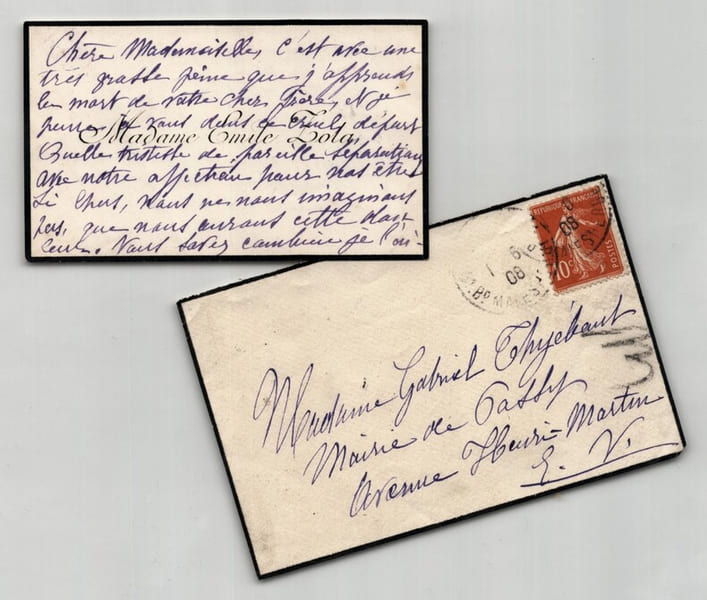 Chère Mademoiselle, c'est avec une
très grande peine que j'apprends
la mort de votre cher Frère, et je
pense à vous dans ce cruel départ
Madame Emile Zola
Quelle tristesse de pareille séparation
avec notre affection pour nos êtres
si chers, nous ne nous imaginons
pas, que nous aurons cette dou-
leur. Vous savez combien je l'ai-
REPUBLIQUE FRANÇAISE
10c
POSTES
6
08
Bd MALESHERBES
Madame Gabriel Thyébaut
Mairie de Passy
Avenue Henri-Martin
E. V.